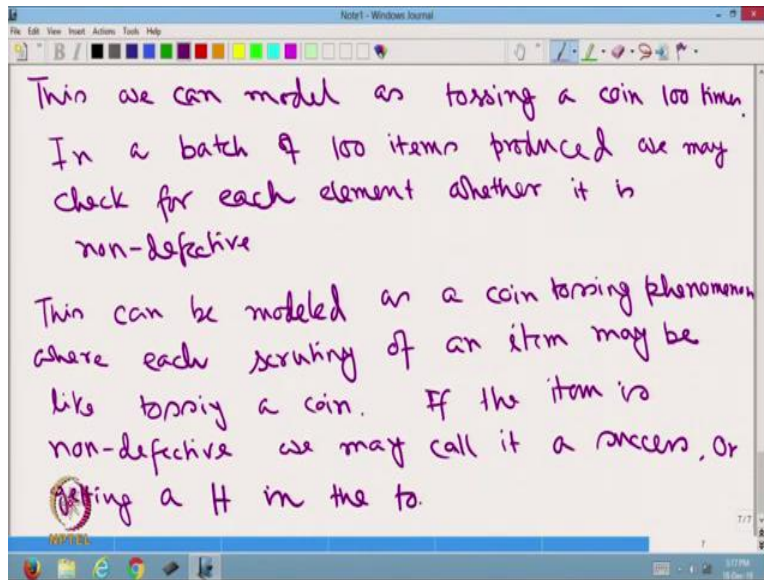 Note1 - Windows Journal
File Edit View Insert Actions Tools Help
This we can model as tossing a coin 100 times.
In a batch of 100 items produced we may
check for each element whether it is
non-defective
This can be modeled as a coin tossing phenomenon
where each scrutiny of an item may be
like tossing a coin. If the item is
non-defective we may call it a success, or
getting a H in the to.
NPTEL
7/7
7
5:17 PM